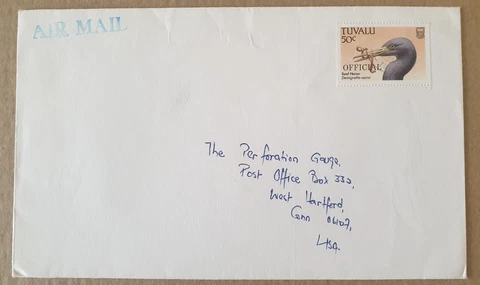 AIR MAIL
TUVALU
50c
OFFICIAL
Reef Heron
The Perforation Gauge,
Post Office Box 330,
West Hartford,
Conn 06107,
USA.